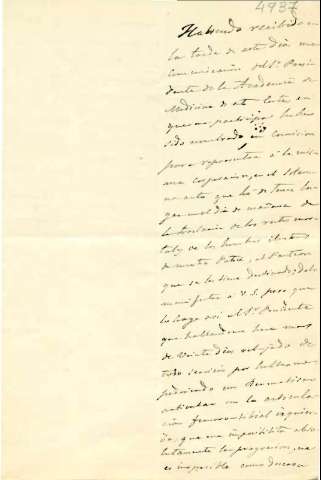 4937
Habiendo recibido en
la tarde de este dia una
comunicacion del Sr. Presi
dente de la Academia de
Medicina de esta Corte en
que me participa haber
sido nombrado en comision
para representar á la mis
ma corporacion, en el solem
ne acto que ha de tener lu
gar en el dia de mañana de
la traslacion de los restos mor
tales de los hombres ilustres
de nuestra Patria, al Panteon
que se les tiene destinado; debo
manifestar á V. S. para que
lo haga asi al Sr. Presidente
que hallandome hace mas
de veinte dias rebajado de
todo servicio por hallarme
padeciendo un Reumatismo
articular en la articula
cion femoro-tibial izquier
da, que me imposibilita abso
lutamente la progresion, me
es imposible como deseara